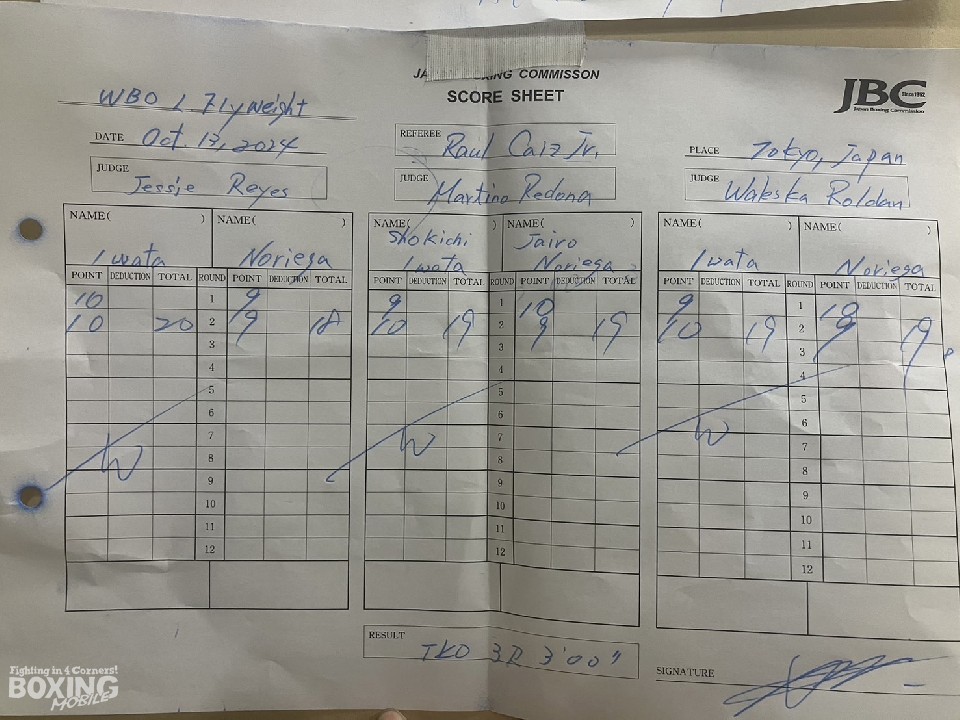 COMMISSON
SCORE SHEET
JBC
Since 1952
Japan Boxing Commission
WBO / Flyweight
DATE Oct. 13, 2024
REFEREE Raul Caiz Jr.
PLACE Tokyo, Japan
JUDGE Jessie Reyes
JUDGE Martino Redona
JUDGE Waleska Roldan
NAME( ) NAME( ) NAME( ) NAME( ) NAME( ) NAME( )
Iwata Noriega Shokichi Iwata Jairo Noriega Iwata Noriega
POINT DEDUCTION TOTAL ROUND POINT DEDUCTION TOTAL POINT DEDUCTION TOTAL ROUND POINT DEDUCTION TOTAL POINT DEDUCTION TOTAL ROUND POINT DEDUCTION TOTAL
10 1 9 9 1 10 9 1 10
10 20 2 9 18 10 19 2 9 19 10 19 2 9 19
3 3 3
4 4 4
5 5 5
6 6 6
W 7 W 7 W 7
8 8 8
9 9 9
10 10 10
11 11 11
12 12 12
RESULT TKO 3R 3'00"
SIGNATURE
Fighting in 4 Corners!
BOXING
MOBILE